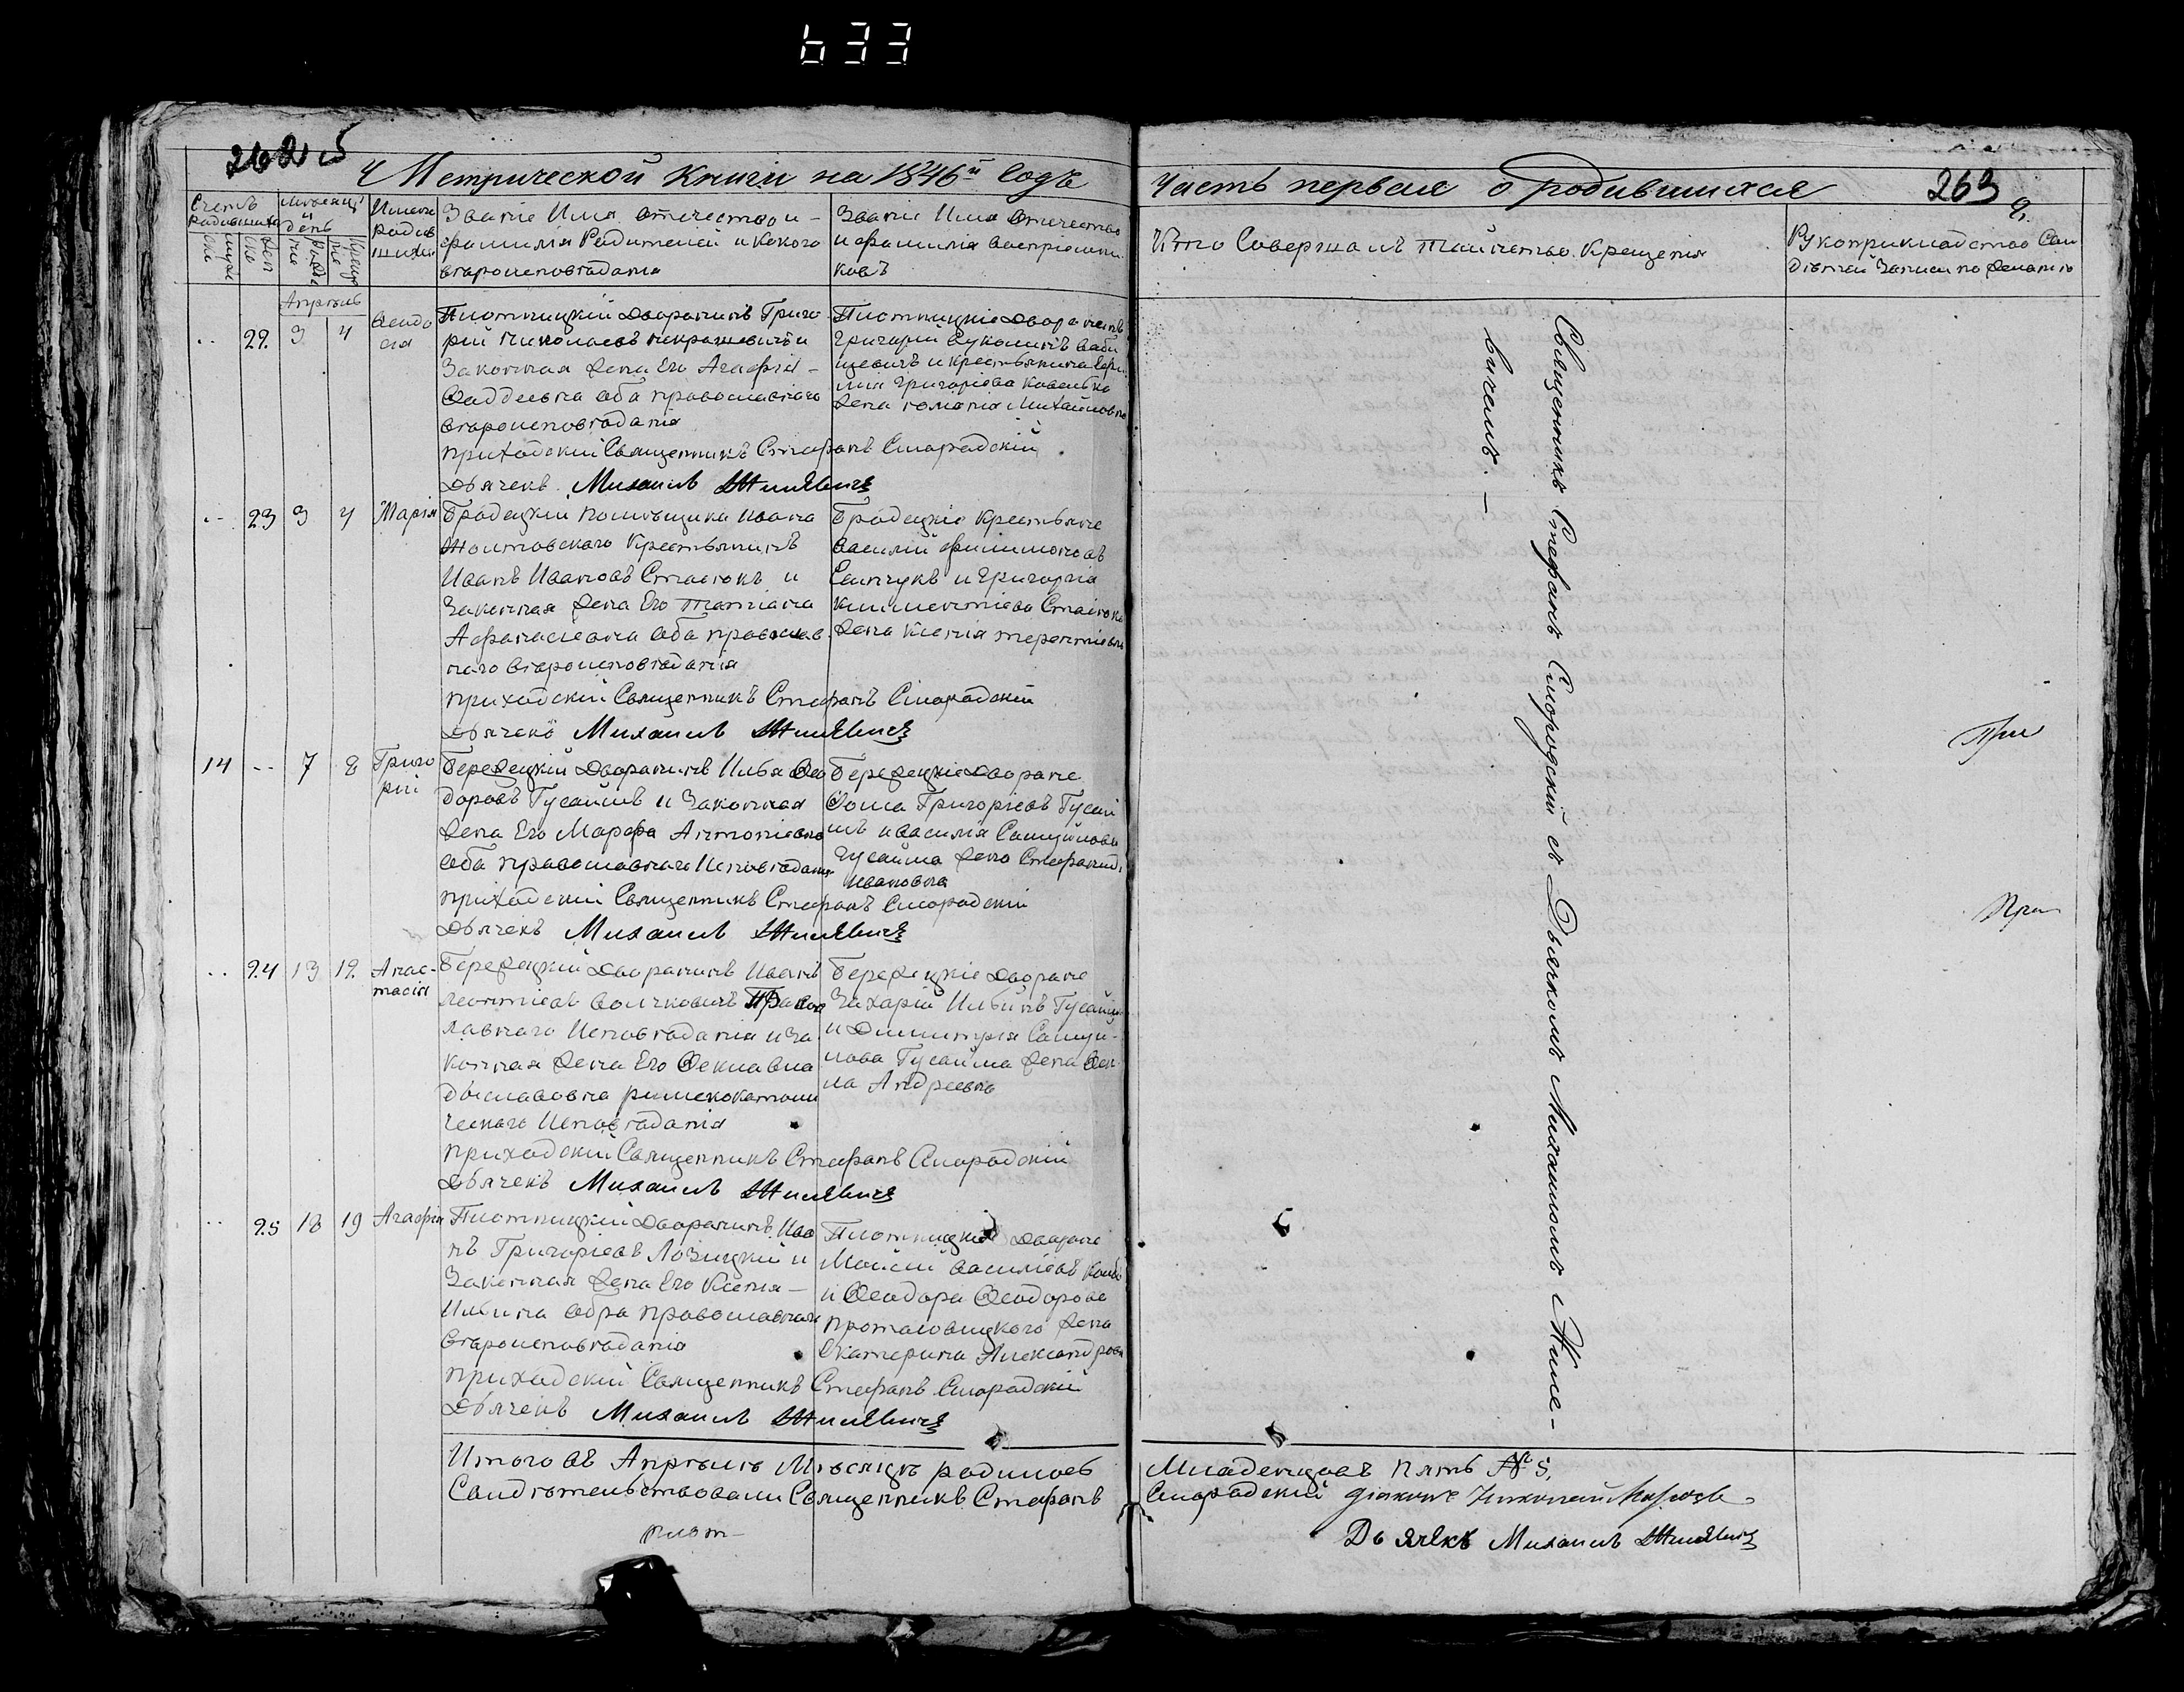 633
262 об
Метрической Книги на 1846й Годъ
Часть первая о родившихся
263
Счетъ родившихся
Мѣсяцъ и день
Имена родив
шихся
Званіе Имя отечество и
фамилія Родителей и Какого
вѣроисповѣданія
Званіе Имя Отечество
и фамилія Воспріемни
ковъ
Кто Совершалъ Таинство Крещенія
Рукоприкладство Сви
дѣтелей Записи по Желанію
Апрѣль
.. 22 3 4
Феодо
сія
Плотницкій Дворянинъ Григо
рій Николаевъ Некрашевичъ и
Законная Жена Его Агафія
Фаддеевна Оба православнаго
вѣроисповѣданія
Плотницкіе Дворянинъ
Григорій
и крестьянина
Григоріева
Жена Михайловна
приходскій Священникъ Стефанъ Смородскій
Дьячекъ Михаилъ Жилевичъ
.. 23 3 4
Марія
Бродецкій помѣщика Ивана
Крестьянинъ
Иванъ Ивановъ Стасюкъ и
Законная Жена Его Татіана
Афанасіевна Оба православ
наго вѣроисповѣданія
Бродецкіе Крестьяне
Василій Филимоновъ
и Григорія
Климентіева Стасюка
Жена Ксенія терентіевна
приходскій Священникъ Стефанъ Смородскій
Дьячекъ Михаилъ Жилевичъ
14 .. 7 8
Григо
рій
Бережецкій Дворянинъ Илья Фео
доровъ Гусаимъ и Законная
Жена Его Марфа Антоніевна
Оба православнаго Исповѣданія
Бережецкіе Дворяне
Фома Григоріевъ Гусаи
мъ и Василія Самуйлова
Гусаима Жена Стефанид
Ивановна
приходскій Священникъ Стефанъ Смородскій
Дьячекъ Михаилъ Жилевичъ
.. 24 13 19
Анас-
тасія
Бережецкій Дворянинъ Иванъ
Леонтіевъ Волчковичъ Правос
лавнаго Исповѣданія и За
конная Жена Его Фекла Вла
дыславовна римскокатоли
ческаго Исповѣданія
Бережецкіе Дворяне
Захарій Ильинъ Гусаимъ
и Димитрія Самуй-
лова Гусаима Жена Фек
ла Андреевна
приходскій Священникъ Стефанъ Смородскій
Дьячекъ Михаилъ Жилевичъ
.. 25 18 19
Агафія
Плотницкій Дворянинъ Ива
нъ Григоріевъ Лозицкій и
Законная Жена Его Ксенія
Ильина Обра православнаго
вѣроисповѣданія
Плотницкіе Дворяне
Моисей Василіевъ
и Феодора Феодорова
Протасовицкого Жена
Екатерина Александрова
приходскій Священникъ Стефанъ Смородскій
Дьячекъ Михаилъ Жилевичъ
Священникъ Стефанъ Смородскій съ Дьячкомъ Михаиломъ Жиле-
вичемъ.
При
При
Итого въ Апрѣлѣ Мѣсяцѣ родилось
Младенцовъ пять № 5.
Свидѣтельствовали Священникъ Стефанъ
Смородскій Діяконъ Николай
Дьячекъ Михаилъ Жилевичъ
плот-